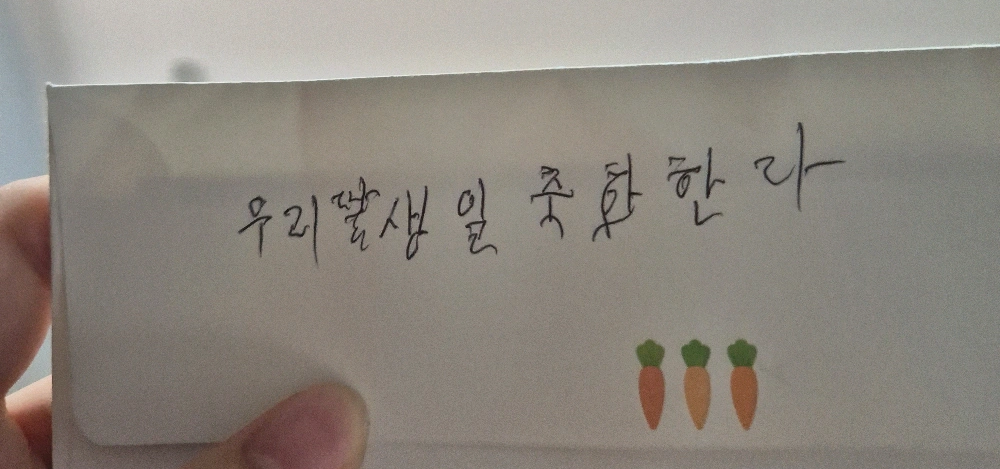 우리딸생일 축하한다